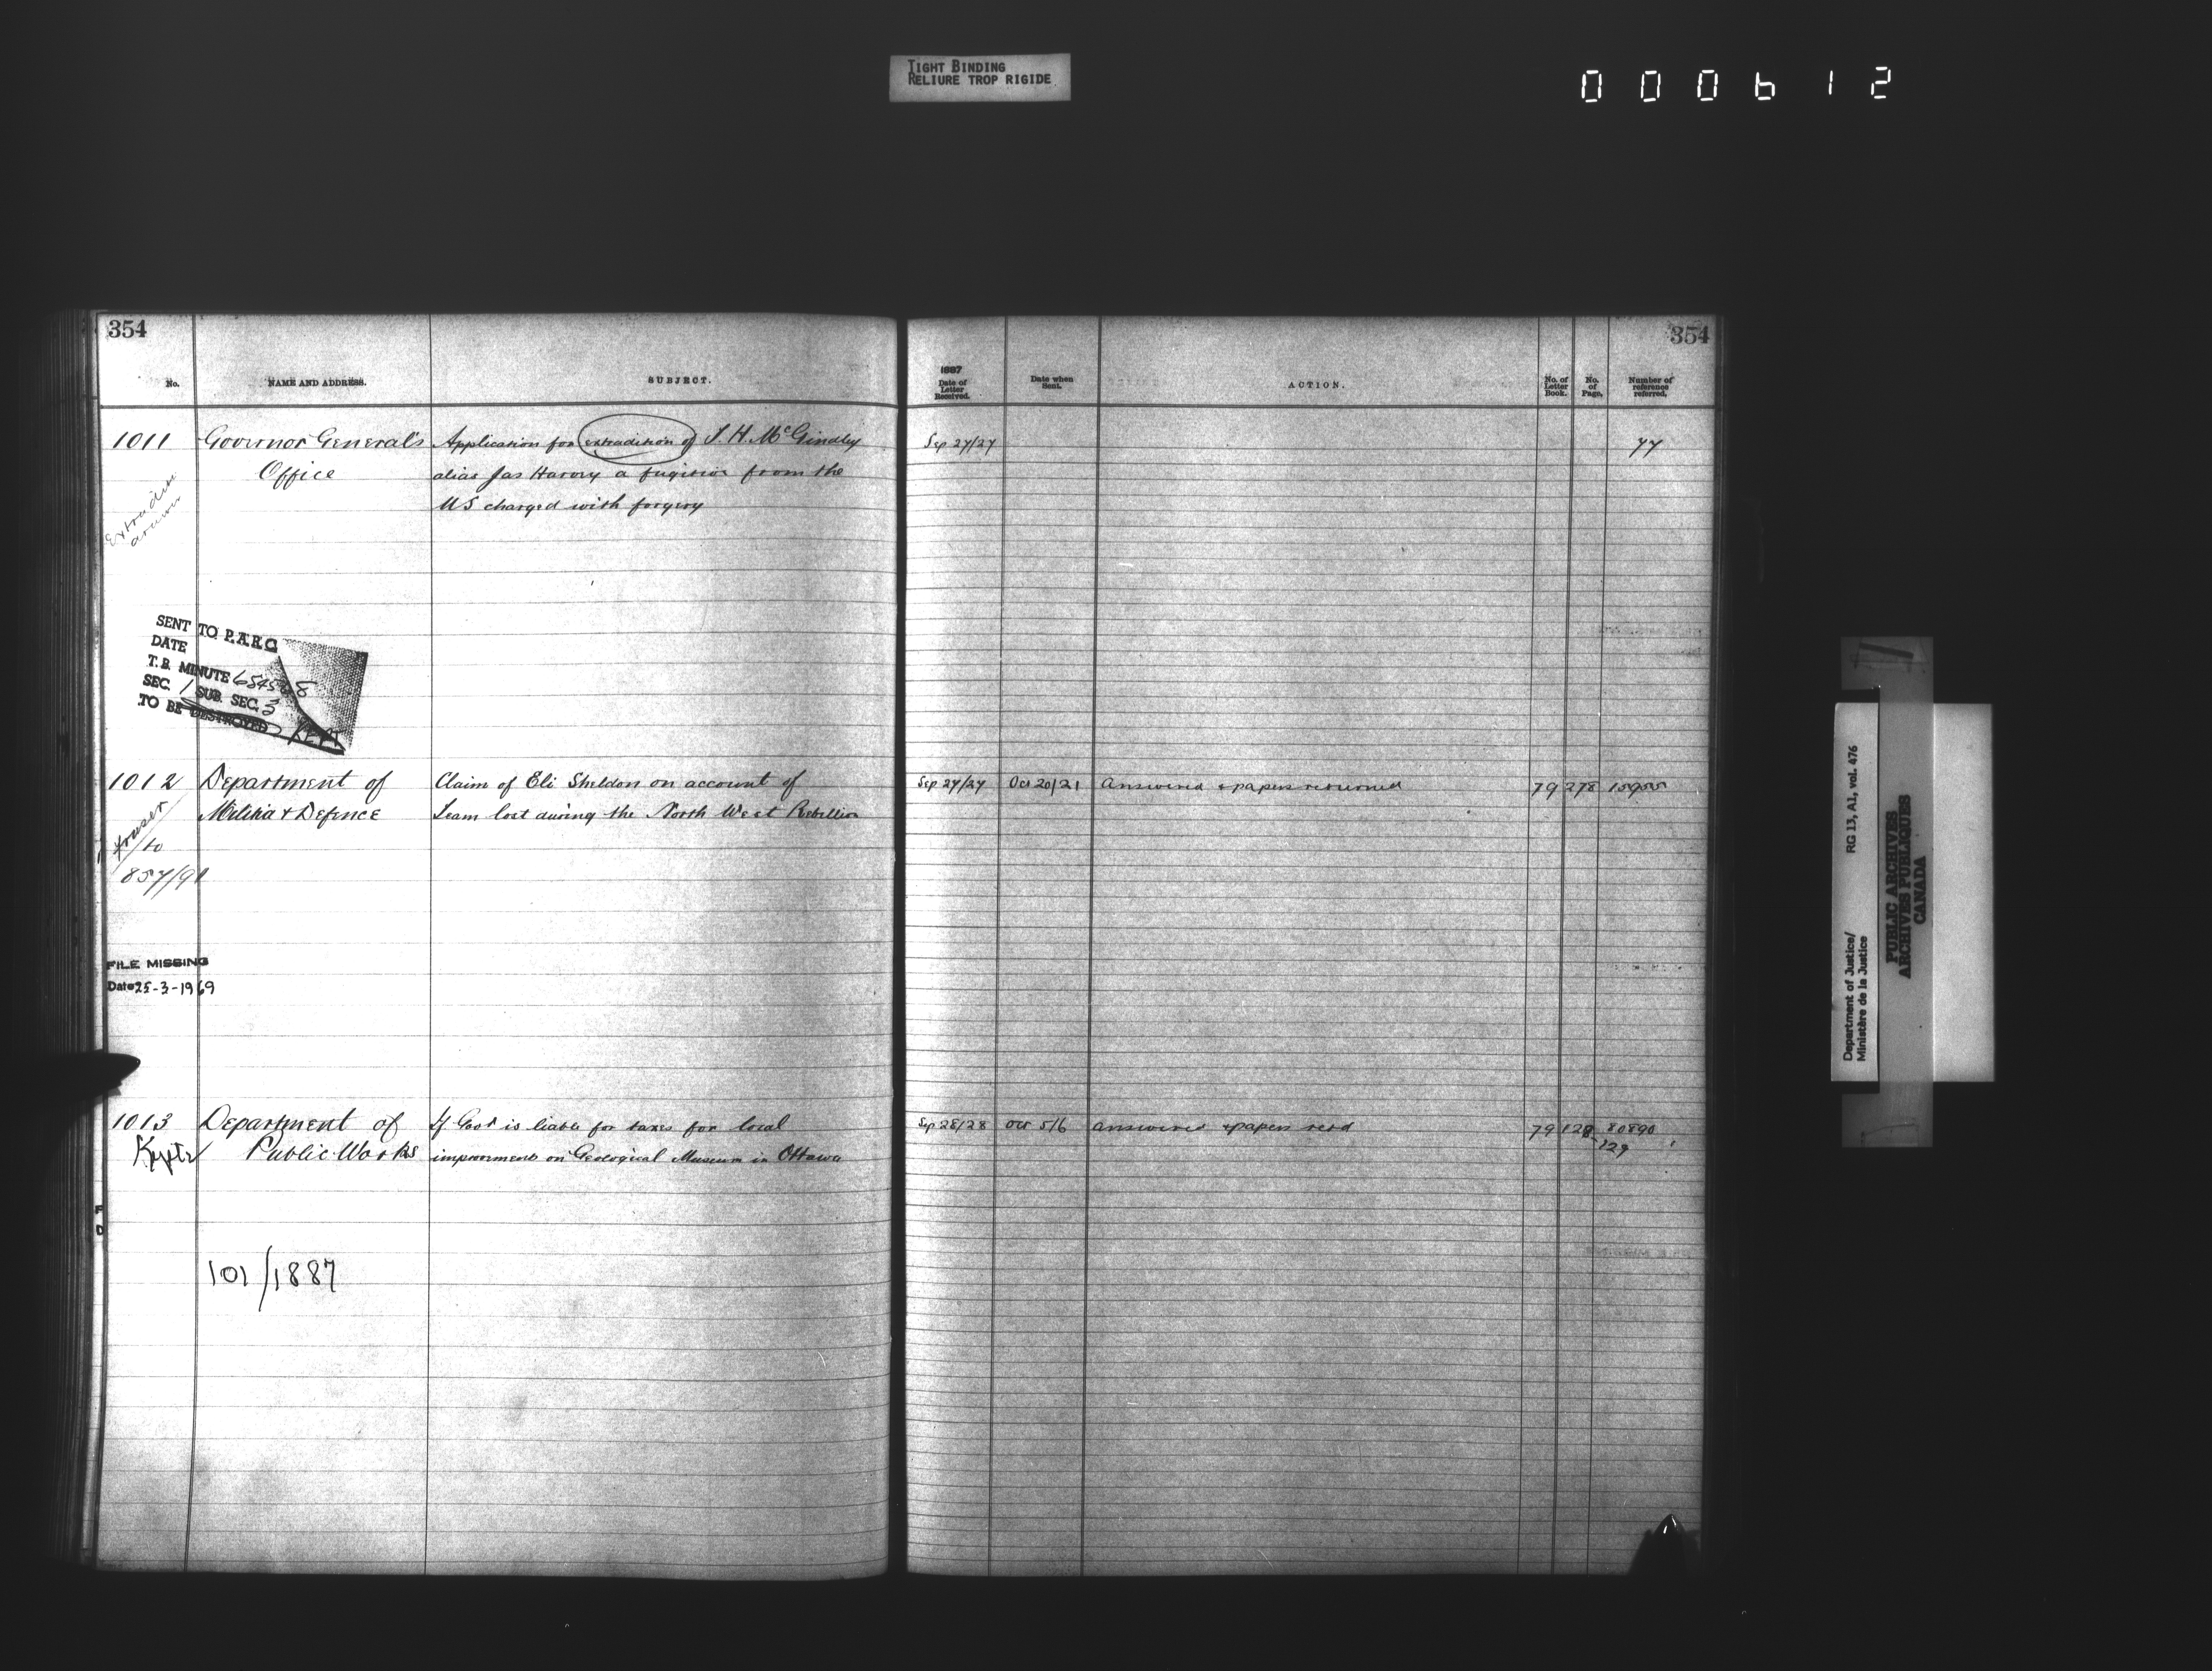 TIGHT BINDING
RELIURE TROP RIGIDE
000612
354
354
No. NAME AND ADDRESS. SUBJECT. 1887 Date of Letter Received. Date when Sent. ACTION. No. of Letter Book. No. of Page. Number of reference referred.
1011 Governor General's Application for extradition of McGindley Sep 27/27 77
Office alias Jas Harvey a fugitive from the
US charged with forgery
SENT TO P.A.R.C
DATE
T.B. MINUTE
SEC. 1 SUB. SEC. 3
TO BE DESTROYED KEPT
1012 Department of Claim of Eli Sheldon on account of Sep 27/27 Oct 20/21 Answered & papers returned 79 278
Militia & Defence Team lost during the North West Rebellion
to
857/91
FILE MISSING
Date 25-3-1969
1013 Department of If Govt is liable for taxes for local Sep 28/28 Oct 5/6 Answered & papers retd 79 128 80890
Public Works improvements on Geological Museum in Ottawa 129
101/1887
Department of Justice/ RG 13, A1, vol. 476
Ministère de la Justice
PUBLIC ARCHIVES
ARCHIVES PUBLIQUES
CANADA